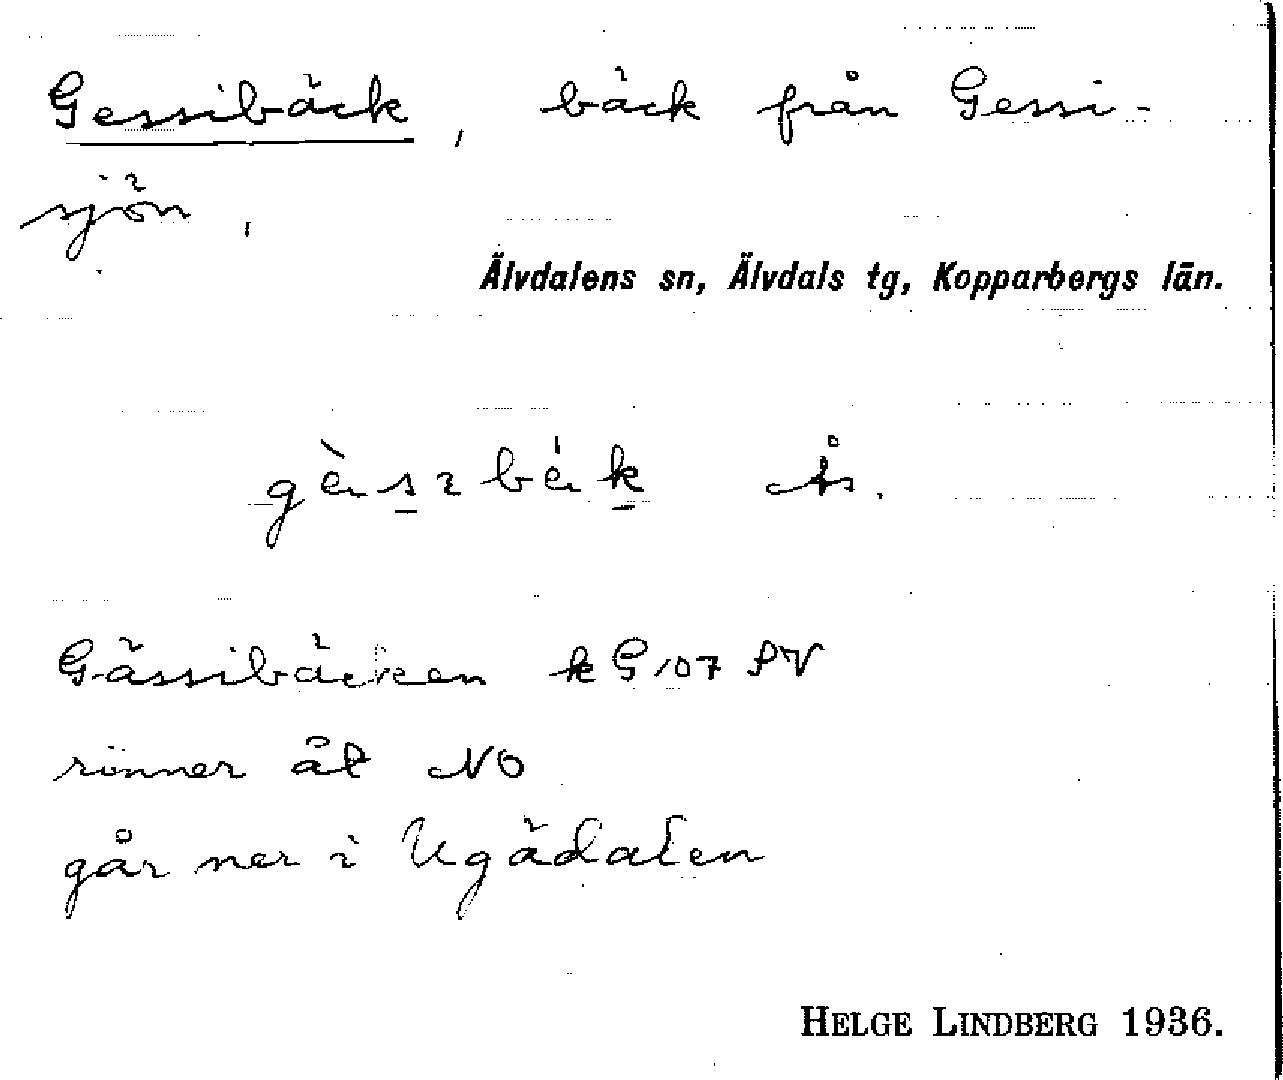 Gessibäck, bäck från Gessi-
sjön,
Älvdalens sn, Älvdals tg, Kopparbergs län.
gèsıbék Ås.
Gässibäcken kG 107 SV
rinner åt NO
går ner i Ugådalen
HELGE LINDBERG 1936.